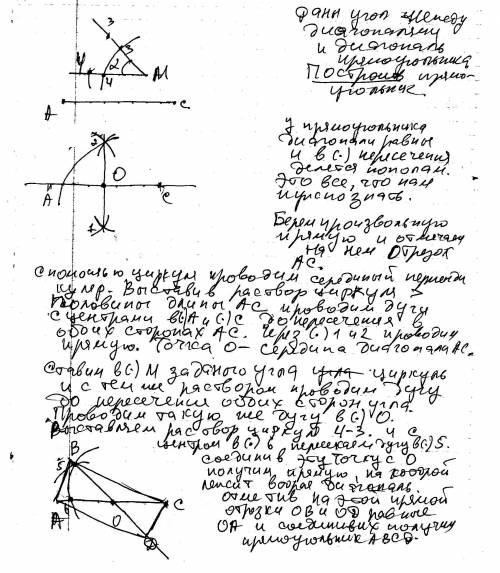 Дани угол между
диагоналями
и диагональ
прямоугольника
Построить прямо-
угольник
У прямоугольника
диагонали равны
и в (·) пересечения
делятся пополам.
Это все, что нам
нужно знать.
Берем произвольную
прямую и отмечаем
на нем отрезок
АС.
С помощью циркуля проводим серединый перпенди
куляр. Выставив раствор циркуля >
половины длины АС проводим дугу
с центрами в (·)А и (·)С до пересечения в
обоих сторонах АС. Через (·) 1 и 2 проводим
прямую. Точка О - середина диагонали АС.
Ставим в (·) М заданого угла циркуль
и с тем же раствором проводим дугу
до пересечения обоих сторон угла.
Проводим такую же дугу в (·) О.
Выставляем раствор циркуля 4-3 и с
центром в (·) 6 пересекаем дугу в (·) 5.
соединив эту точку с О
получим прямую, на которой
лежит вторая диагональ.
отметив на этой прямой
отрезки ОВ и OD равные
ОА и соединивих получим
прямоугольник ABCD.
3
3
2
М
4
А
С
2
О
А
С
1
В
5
А
6
О
С
D